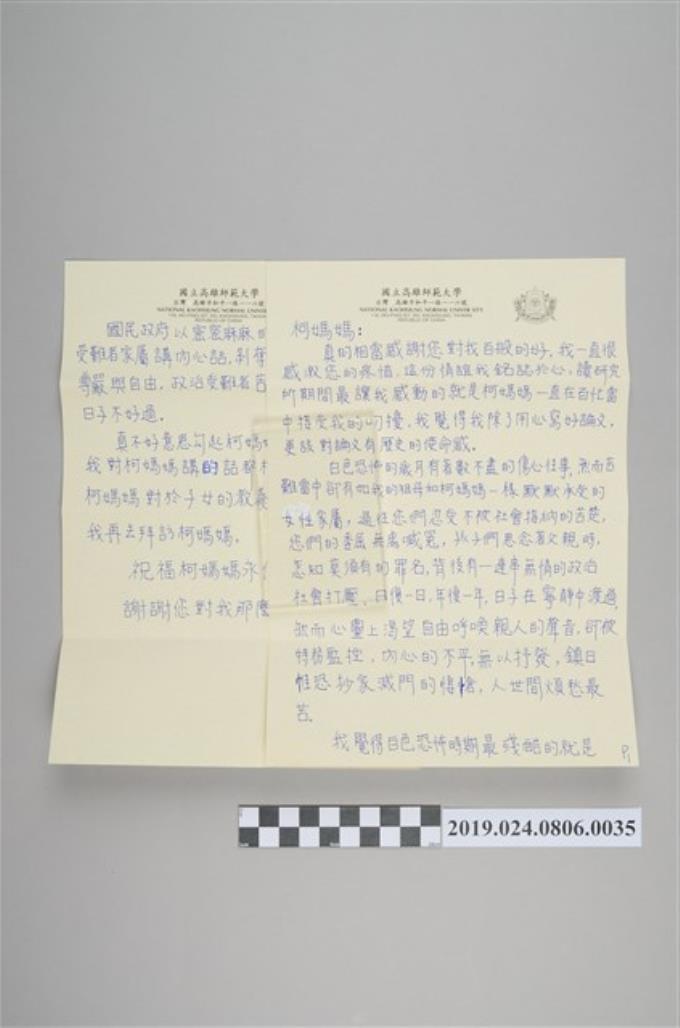 國立高雄師範大學
台灣 高雄市和平一路一一六號
NATIONAL KAOHSIUNG NORMAL UNIVERSITY
REPUBLIC OF CHINA
柯媽媽：
真的相當感謝您對我百般的好，我一直很
感激您的疼惜，這份情誼我銘誌於心，讀研究
所期間最讓我感動的就是柯媽媽一直在百忙當
中接受我的叨擾，我覺得我除了用心寫好論文，
更該對論文有歷史的使命感。
白色恐怖的歲月有著數不盡的傷心往事，然而苦
難當中卻有如我的祖母和柯媽媽一樣默默承受的
女性家屬，過往您們忍受不被社會接納的苦楚，
您們的委屈無處喊冤，孩子們思念著父親時，
怎知莫須有的罪名，背後有一連串無情的政治
社會打壓、日復一日，年復一年，日子在寧靜中渡過，
然而心靈上渴望自由呼喚親人的聲音，卻被
特務監控，內心的不平，無以抒發，鎮日
惟恐抄家滅門的悽愴，人世間煩愁最
苦。
我覺得白色恐怖時期最殘酷的就是
P1
國立高雄師範大學
台灣 高雄市和平一路一一六號
NATIONAL KAOHSIUNG NORMAL UNIVER
REPUBLIC OF CHINA
國民政府以密密麻麻
受難者家屬講內心話，剝奪
尊嚴與自由，政治受難者苦
日子不好過。
真不好意思勾起柯媽媽
我對柯媽媽講的話都
柯媽媽對於子女的教養
我再去拜訪柯媽媽。
祝福柯媽媽永
謝謝您對我那麼
2019.024.0806.0035